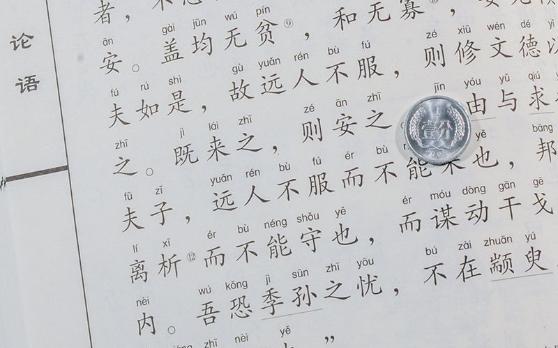 论语
者，不
ān gài jūn wú pín
安。盖均无贫⑨，和无寡，安无
fú rú shì gù yuǎn rén bù fú zé xiū wén dé
夫如是，故远人不服，则修文德以
jì lái zhī zé ān zhī jīn yóu yǔ qiú
之。既来之，则安之。由与求
壹分
fū zǐ yuǎn rén bù fú ér bù yě bāng
夫子，远人不服而不能来也，邦
lí xī ér bù néng shǒu yě ér móu dòng gān gē
离析⑫而不能守也，而谋动干戈
nèi wú kǒng jì sūn zhī yōu bú zài zhuān yú
内。吾恐季孙之忧，不在颛臾
zhī nèi yě
”